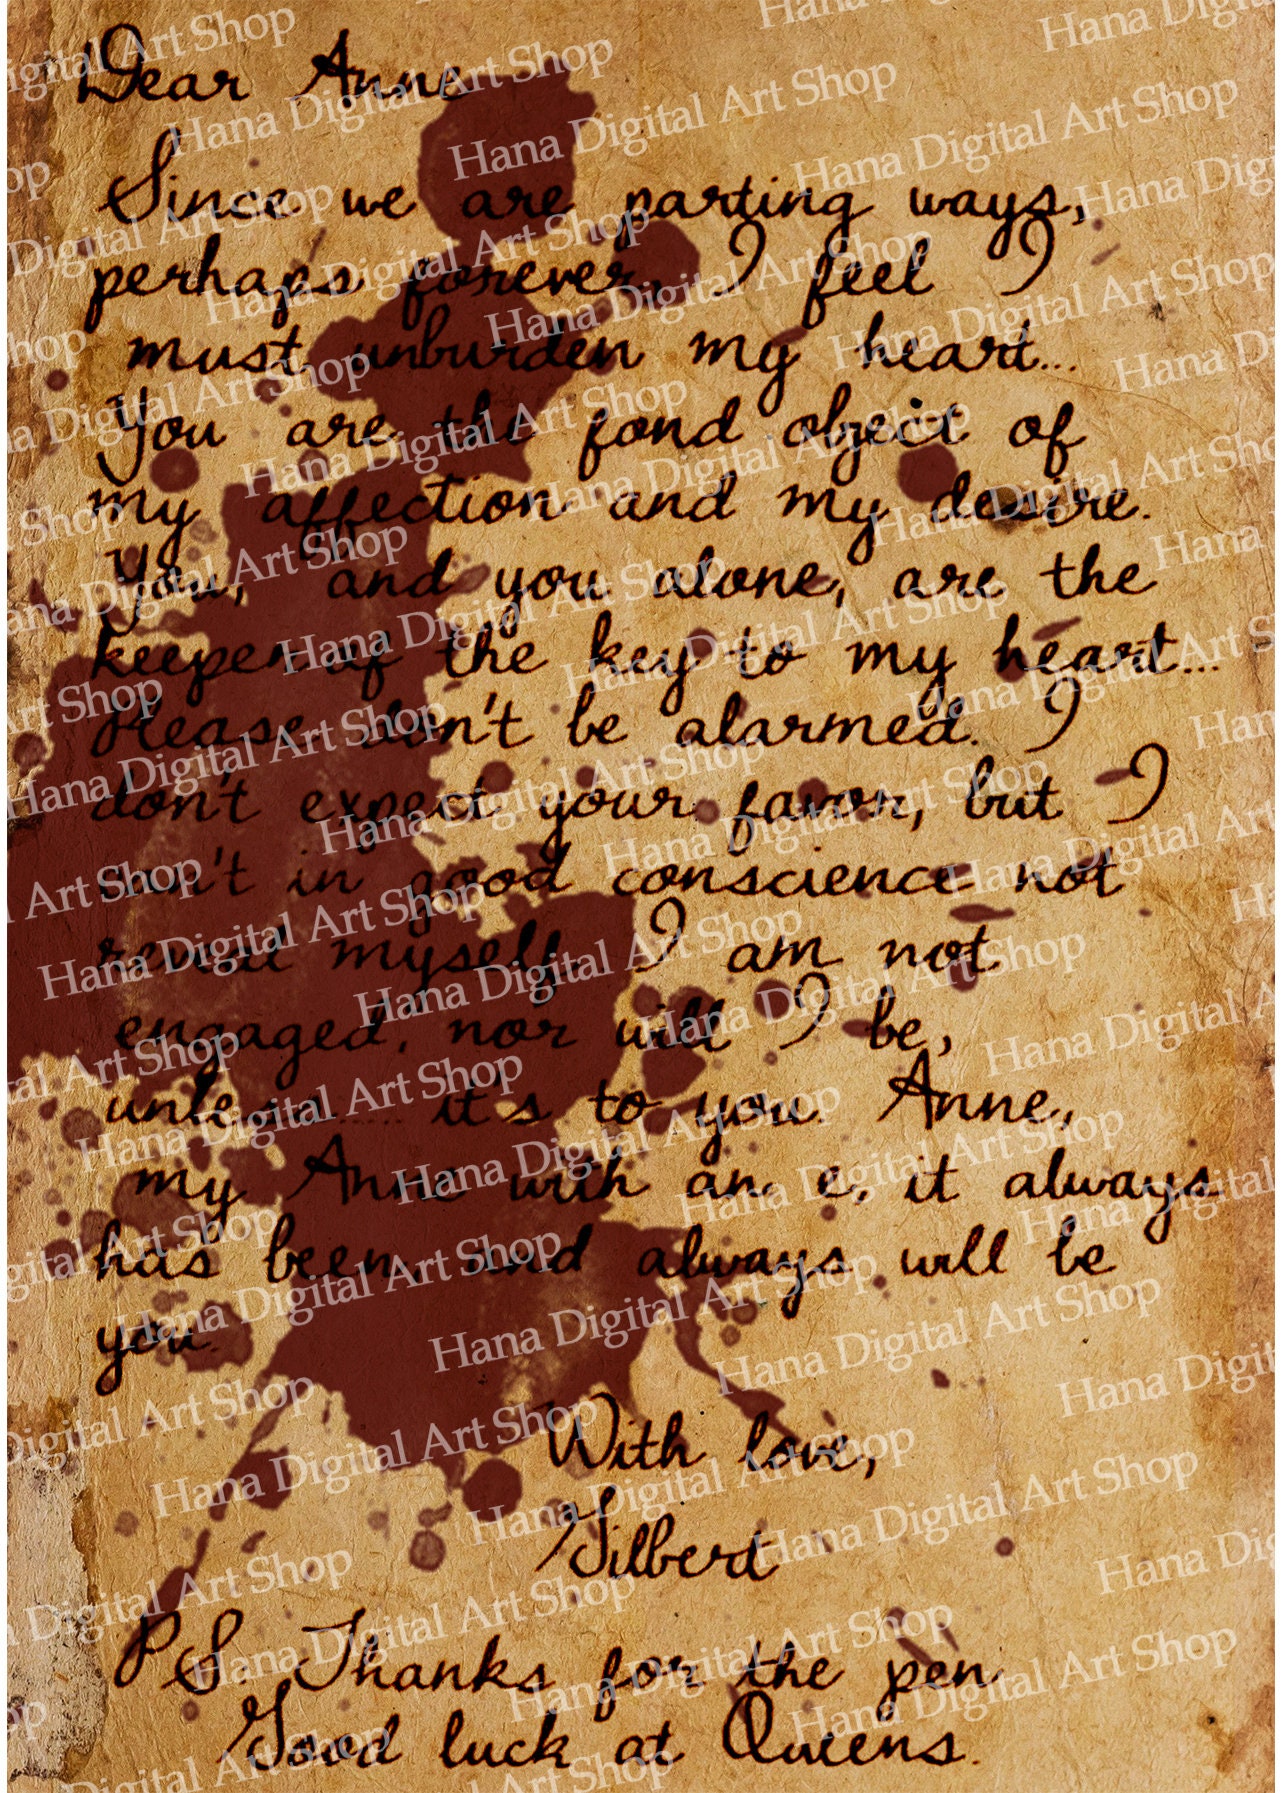 Dear Anne
Since we are parting ways,
perhaps forever I feel I
must unburden my heart...
You are the fond object of
my affection and my desire.
You, and you alone, are the
keeper of the key to my heart...
Please don't be alarmed. I
don't expect your favor, but I
can't in good conscience not
reveal myself I am not
engaged, nor will I be,
unless...... it's to you. Anne,
my Anne with an e, it always
has been and always will be
you.
With love,
Gilbert
P.S. Thanks for the pen
Good luck at Queens.
Hana Digital Art Shop